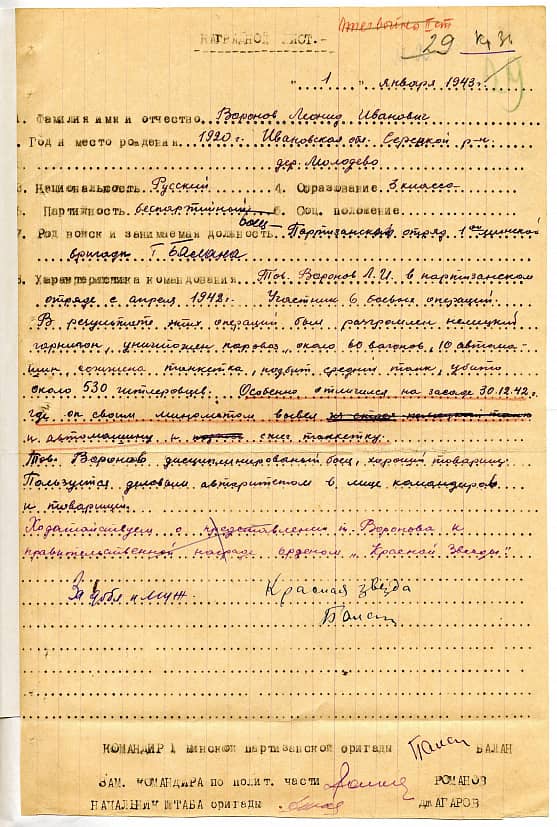 Отечествен II ст
29
НАГРАДНОЙ ЛИСТ.-
"1" января 1943г.
1. Фамилия имя и отчество Воронов Леонид Иванович
Год и место рождения 1920г. Ивановская обл. Середской р-н
дер. Молодево
3. Национальность Русский 4. Образование 5 классо
5. Партийность беспартийный 6. Соц. положение
боец
7. Род войск и занимаемая должность Партизанского отряд 1ой Минской
бригады
8. Характеристика командования Тов. Воронов Л.И. в партизанском
отряде с апреля 1942г. Участник 6 боевых операций.
В результате этих операций был разгромлен немецкий
гарнизон, уничтожен паровоз, около 60 вагонов, 10 автома-
шин, сожжена танкетка, подбит средний танк, убито
около 530 гитлеровцев. Особенно отличился на засаде 30.12.42.
где он своим минометом вывел
и автомашину и сжег танкетку.
Тов. Воронов дисциплинированый боец, хороший товарищ.
Пользуется деловым авторитетом в лице командиров
и товарищей.
Ходатайствуем о представлении т. Воронова к
правительственной награде орденом "Красной Звезды".
За добл и муж. Красная звезда
КОМАНДИР 1 МИНСКОЙ ПАРТИЗАНСКОЙ БРИГАДЫ БАЛАН
ЗАМ. КОМАНДИРА ПО ПОЛИТ. ЧАСТИ РОМАНОВ
НАЧАЛЬНИК ШТАБА БРИГАДЫ ДЖАГАРОВ